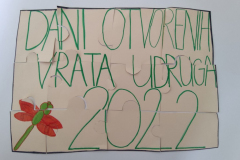 DANI OTVORENIH
VRATA UDRUGA
2022